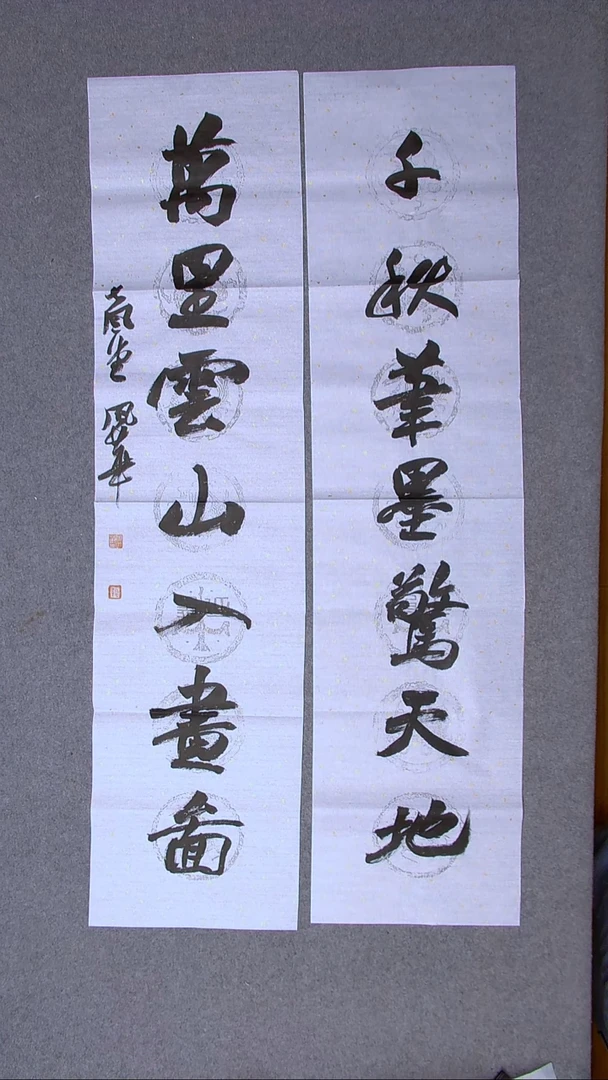 千秋筆墨驚天地
萬里雲山入畫圖
風華